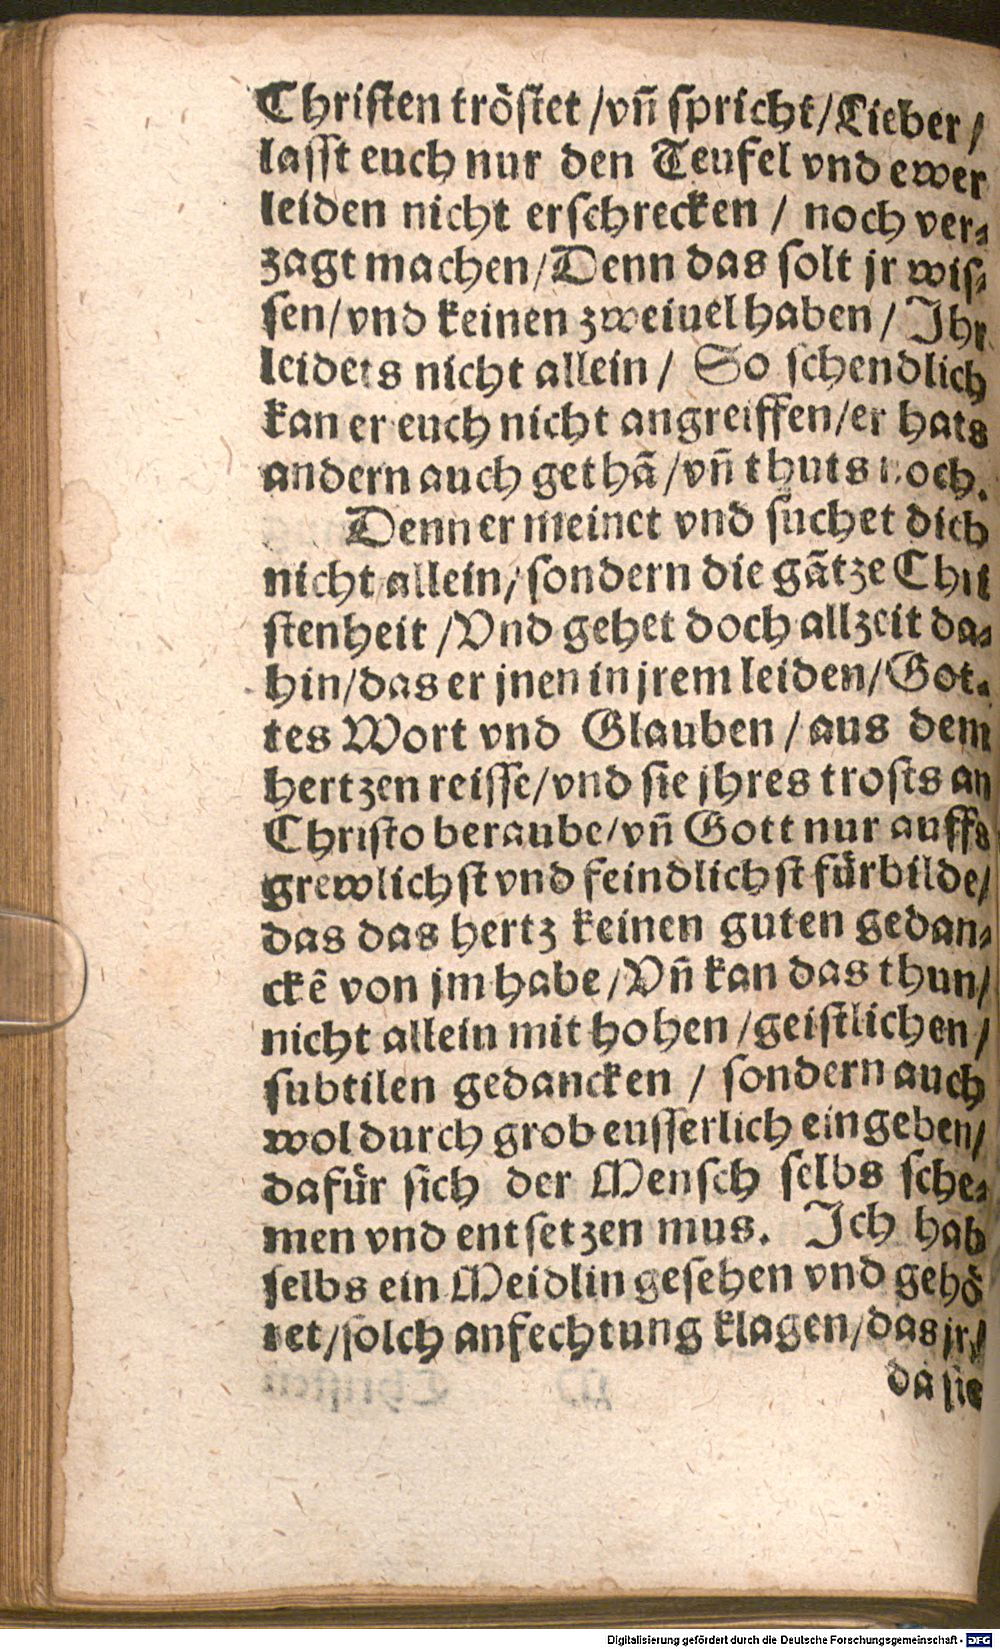 Christen tröstet /vñ spricht/Lieber/
lasst euch nur den Teufel vnd ewer
leiden nicht erschrecken / noch ver-
zagt machen/Denn das solt jr wis-
sen/vnd keinen zweiuel haben/ Ihr
leidets nicht allein/ So schendlich
kan er euch nicht angreiffen/er hats
andern auch gethã/vñ thuts noch.
Denn er meinet vnd suchet dich
nicht allein/sondern die gãtze Chri
stenheit /Vnd gehet doch allzeit da-
hin/das er jnen in jrem leiden/Got-
tes Wort vnd Glauben/aus dem
hertzen reisse/vnd sie jhres trosts an
Christo beraube/vñ Gott nur auffs
grewlichst vnd feindlichst fürbilde/
das das hertz keinen guten gedan-
ckẽ von jm habe/Vñ kan das thun/
nicht allein mit hohen/geistlichen/
subtilen gedancken / sondern auch
wol durch grob eusserlich eingeben/
dafür sich der Mensch selbs sche-
men vnd entsetzen mus. Ich hab
selbs ein Meidlin gesehen vnd gehö
ret/solch anfechtung klagen/das jr/
da sie
Digitalisierung gefördert durch die Deutsche Forschungsgemeinschaft - DFG